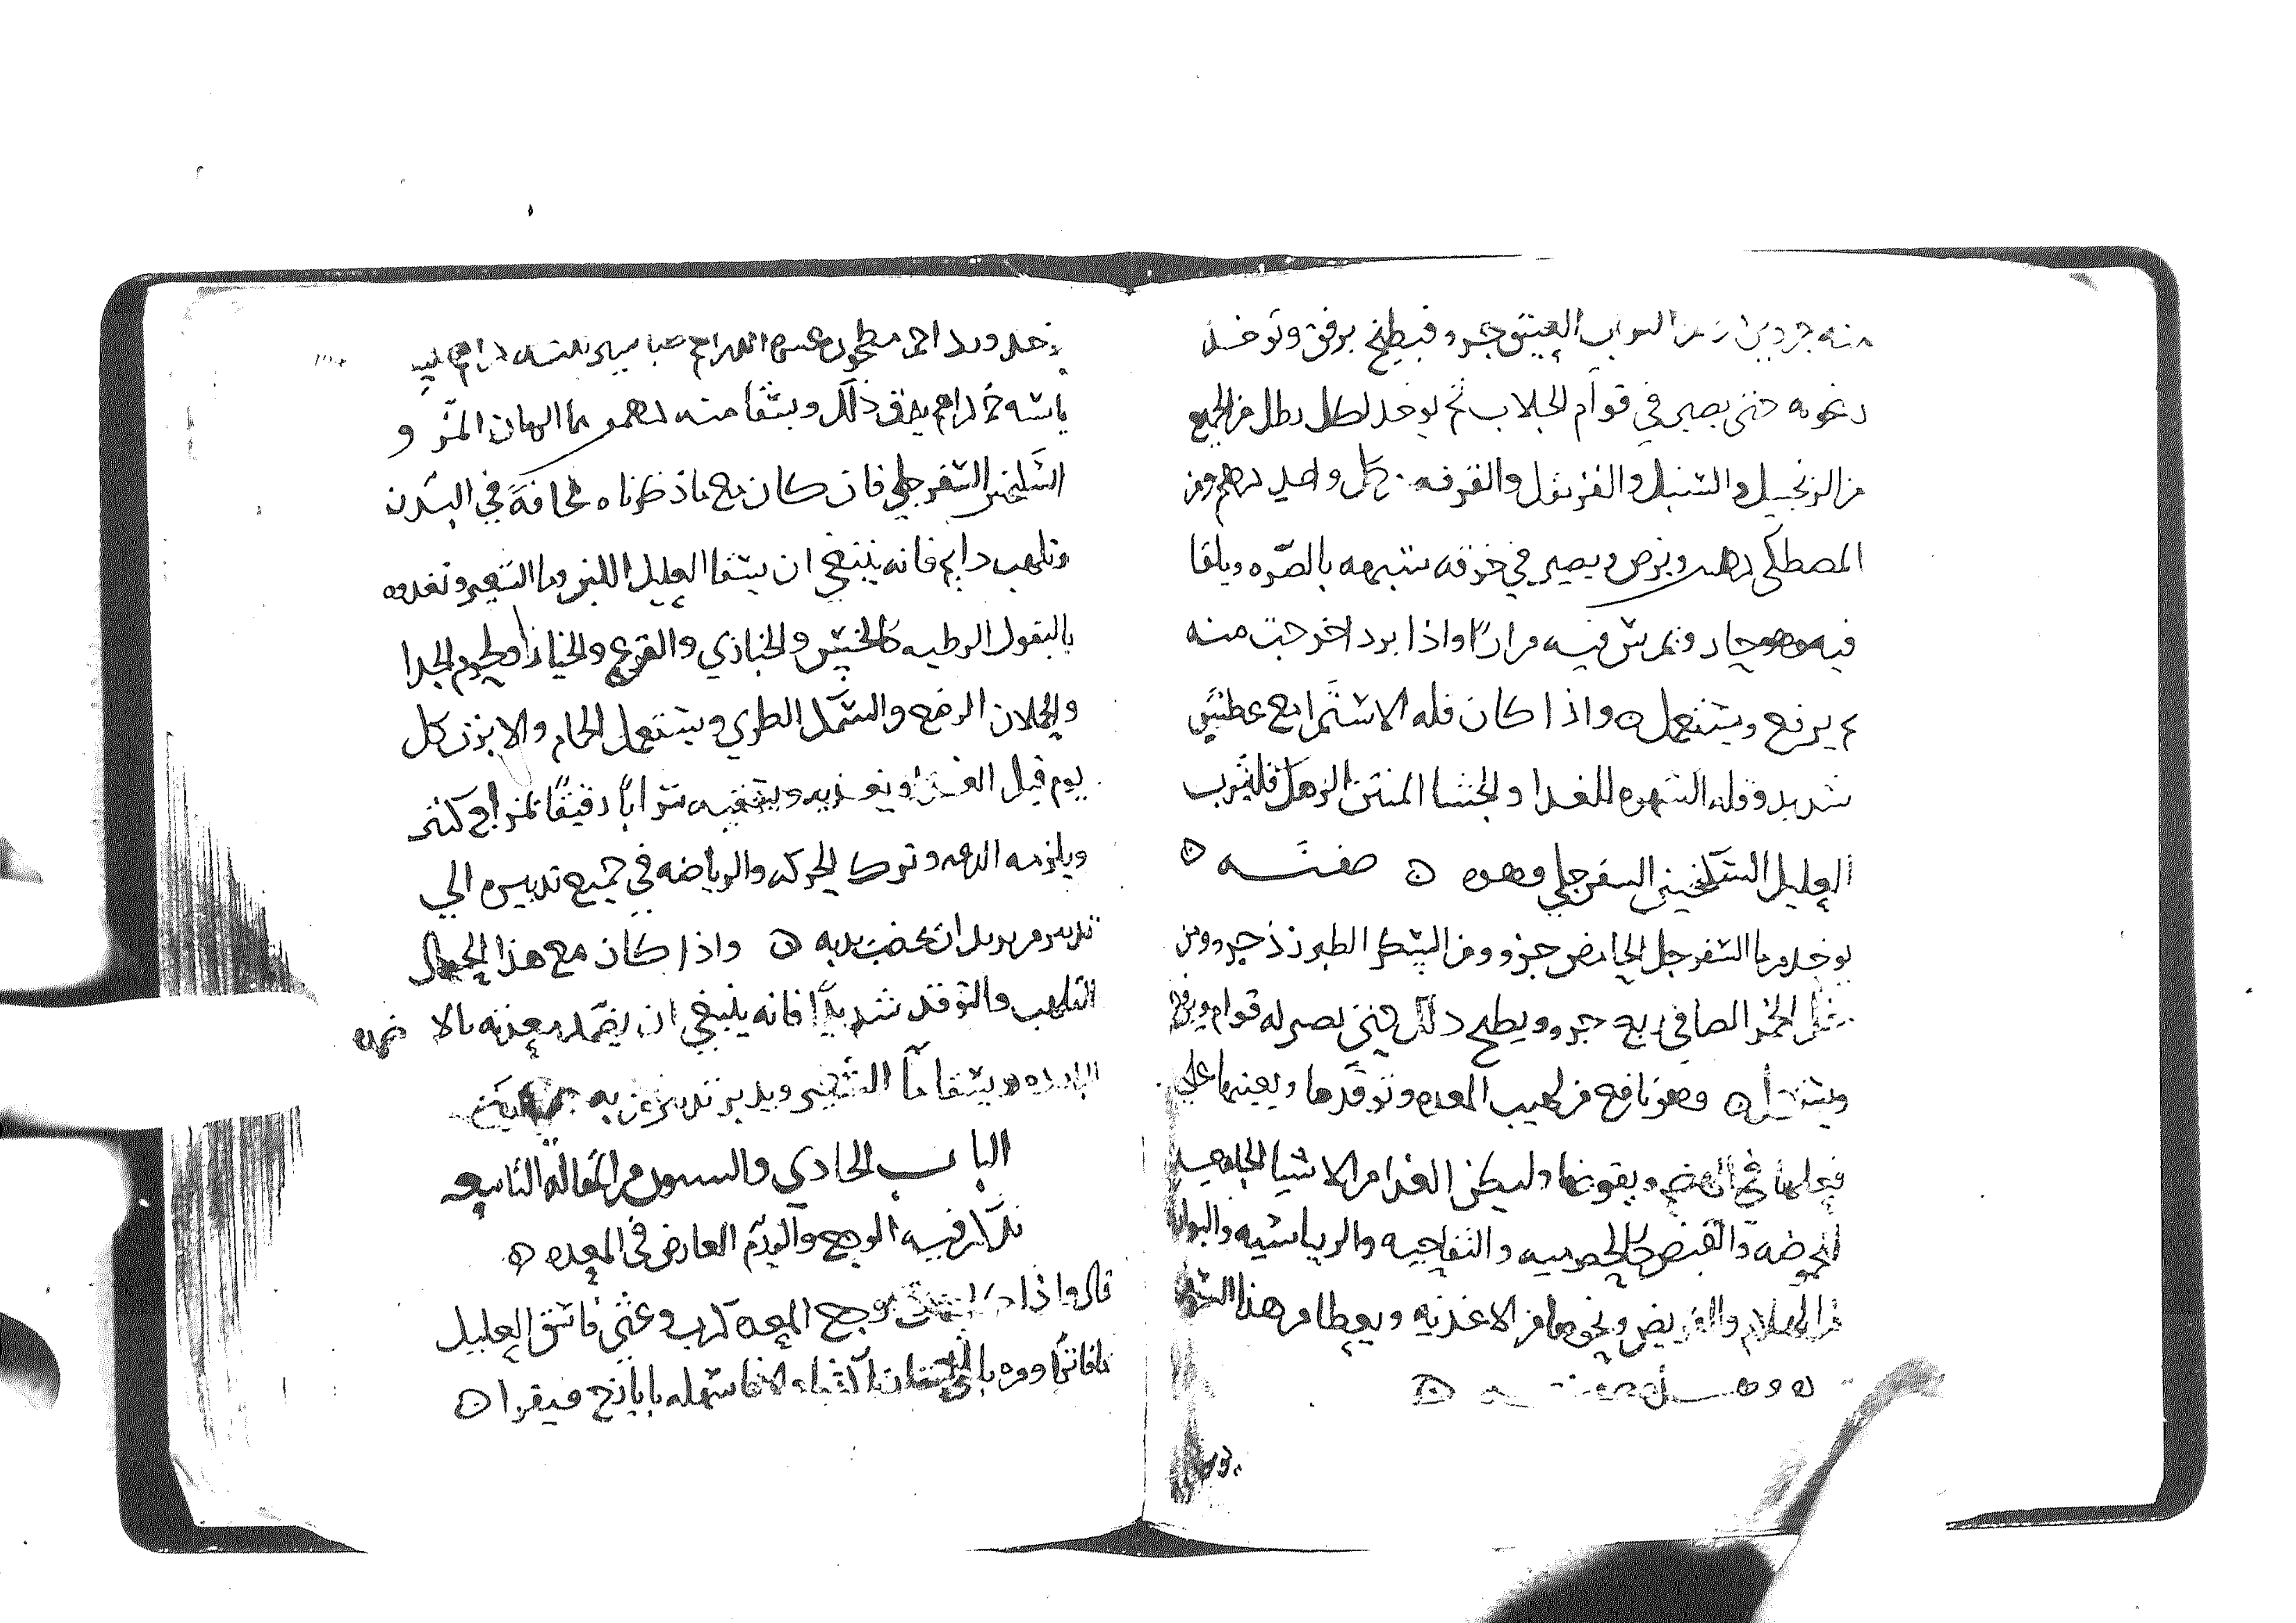 منه جزوين ومن الشراب العتيق جزو فيطبخ برفق وتوخذ
رغوته حتى يصير في قوام الجلاب ثم يوخذ لكل رطل من الجميع
من الزنجبيل والسنبل والقرنفل والقرفه من كل واحد درهم ومن
المصطكى درهمين ويرض ويصير في خرقه شبيهه بالصره ويلقا
فيه وهو حار وتمرس فيه مرارًا واذا برد اخرجت منه
ثم يرفع ويستعمل ۞ واذا كان قله الاستمرا مع عطش
شديد وقله الشهوه للغدا والجشا المنتن الزهك فليشرب
العليل السكنجبين السفرجلي وهوه ۞ صفتـــه ۞
يوخذ من ما السفرجل الحامض جزو ومن السكر الطبرزذ جزو ومن
الخمر الصافي ربع جزو ويطبخ ذلك حتى يصير له قوام ويرفع
ويستعمل ۞ وهو نافع من لهيب المعده وتوقدها ويعينها على
فعلها في الهضم ويقويها وليكن الغدا من الاشيا
الحموضه والقبض كالحصرميه والتفاحيه والريباسيه
من الهلام والقريض ونحوها من الاغذيه ويعطا من هذا
۞
يوخذ ورد احمر مطحون عشره الدراهم طباشير ثلثه دراهم
يابسه دراهم يدق ذلك ويسقا منه درهمين بما الرمان المز و
السكنجبين السفرجلي فان كان مع ما ذكرناه نحافة في البدن
وتلهب دايم فانه ينبغي ان يسقا العليل اللبن وما الشعير وتغدوه
بالبقول الرطبه كالخس والخبازي والقرع والخيار ولحوم الجدا
والحملان الرضع والسمك الطري ويستعمل الحمام والابزن كل
يوم قبل الغدا وبعده ويسقيه شرابًا رقيقًا بمزاج كثير
ويلزمه الدعه وترك الحركه والرياضه في جميع تدبيره الي
تدبير من يريد ان يخصب بدنه ۞ واذا كان مع هذا الحال
التلهب والتوقد شديدًا فانه ينبغي ان يضمد معدته بالاضمده
البارده ويسقا مآ الشعير ويدبر تدبير من به
البــاب الحادي والستون من المقاله التاسعه
نذكر فيه الوجع والورم العارض في المعده ۞
قال واذا كان وجع المعده كرب وغثي فاسق العليل
ما فاترًا ومره بالقي اسهله بايارج فيقرا ۞